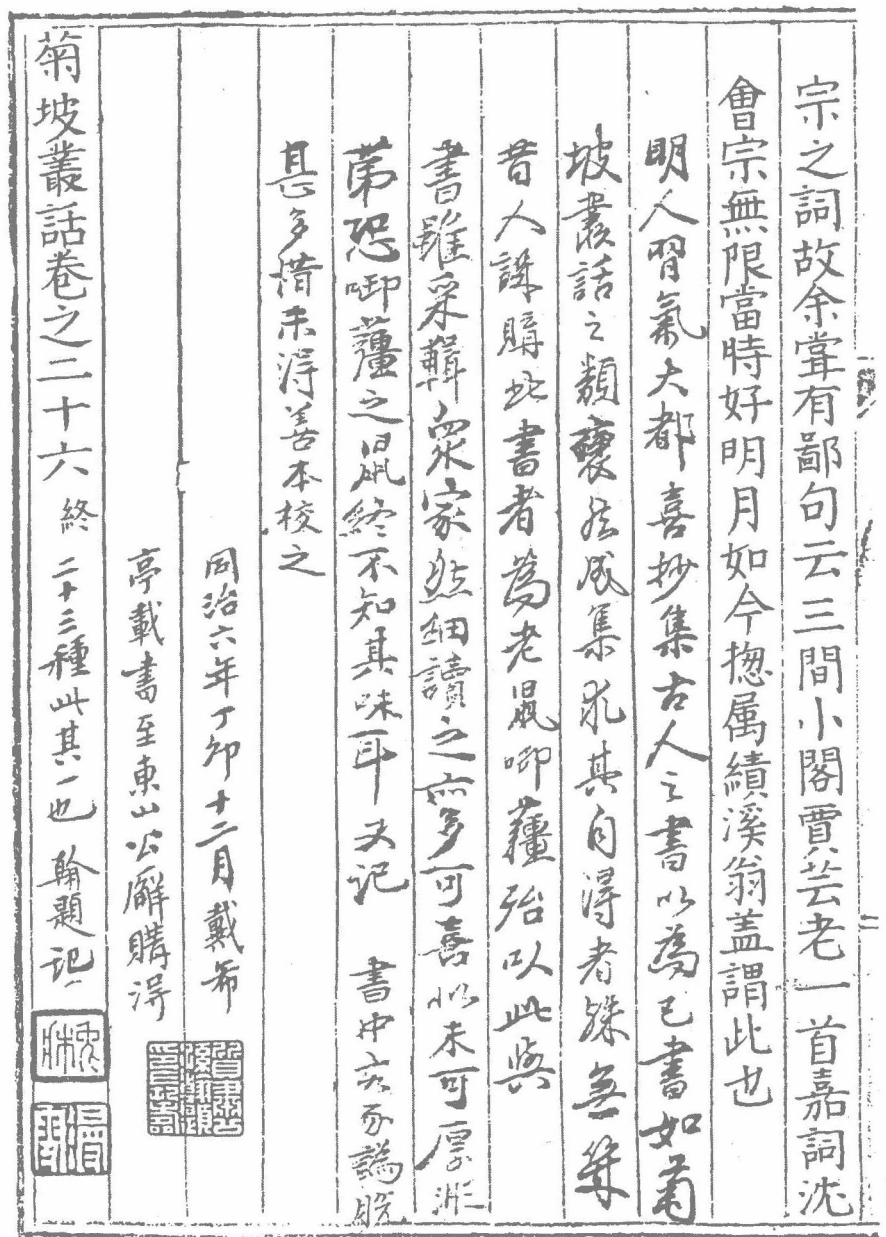 宗之詞故余嘗有鄙句云三間小閣賈芸老一首嘉詞沈
會宗無限當時好明月如今揔属績溪翁盖謂此也
明人習氣大都喜抄集古人之書以為己書如菊
坡叢話之類裒然成集求其自得者殊無幾
昔人誚購此書者為老鼠啣薑殆以此與
書雖采輯衆家然細讀之亦多可喜似未可厚非
苐恐啣薑之鼠終不知其味耳又记 書中亥豕譌脱
甚多惜未得善本校之
同治六年丁卯十二月戴希
亭載書至東山公廨購得
菊坡叢話卷之二十六 終 二十三種此其一也 翰題記